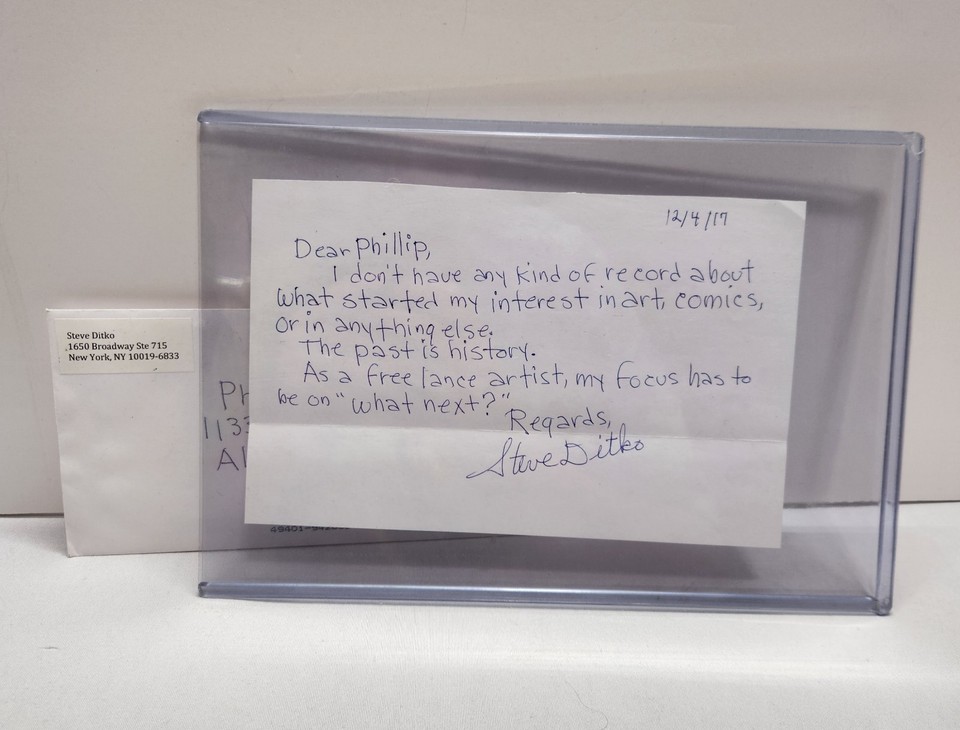 12/4/17
Dear Phillip,
I don't have any kind of record about
what started my interest in art, comics,
or in anything else.
The past is history.
As a free lance artist, my focus has to
be on "what next?"
Regards,
Steve Ditko
Steve Ditko
1650 Broadway Ste 715
New York, NY 10019-6833
Ph
1133
Al
49401